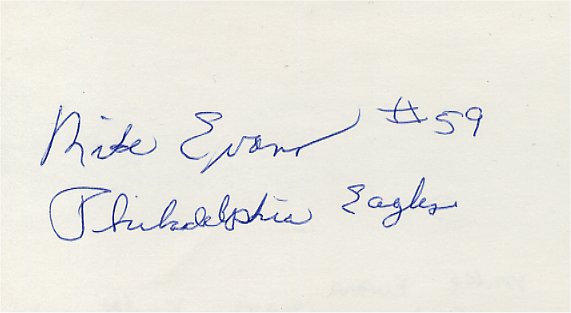 Mike Evans #59
Philadelphia Eagles